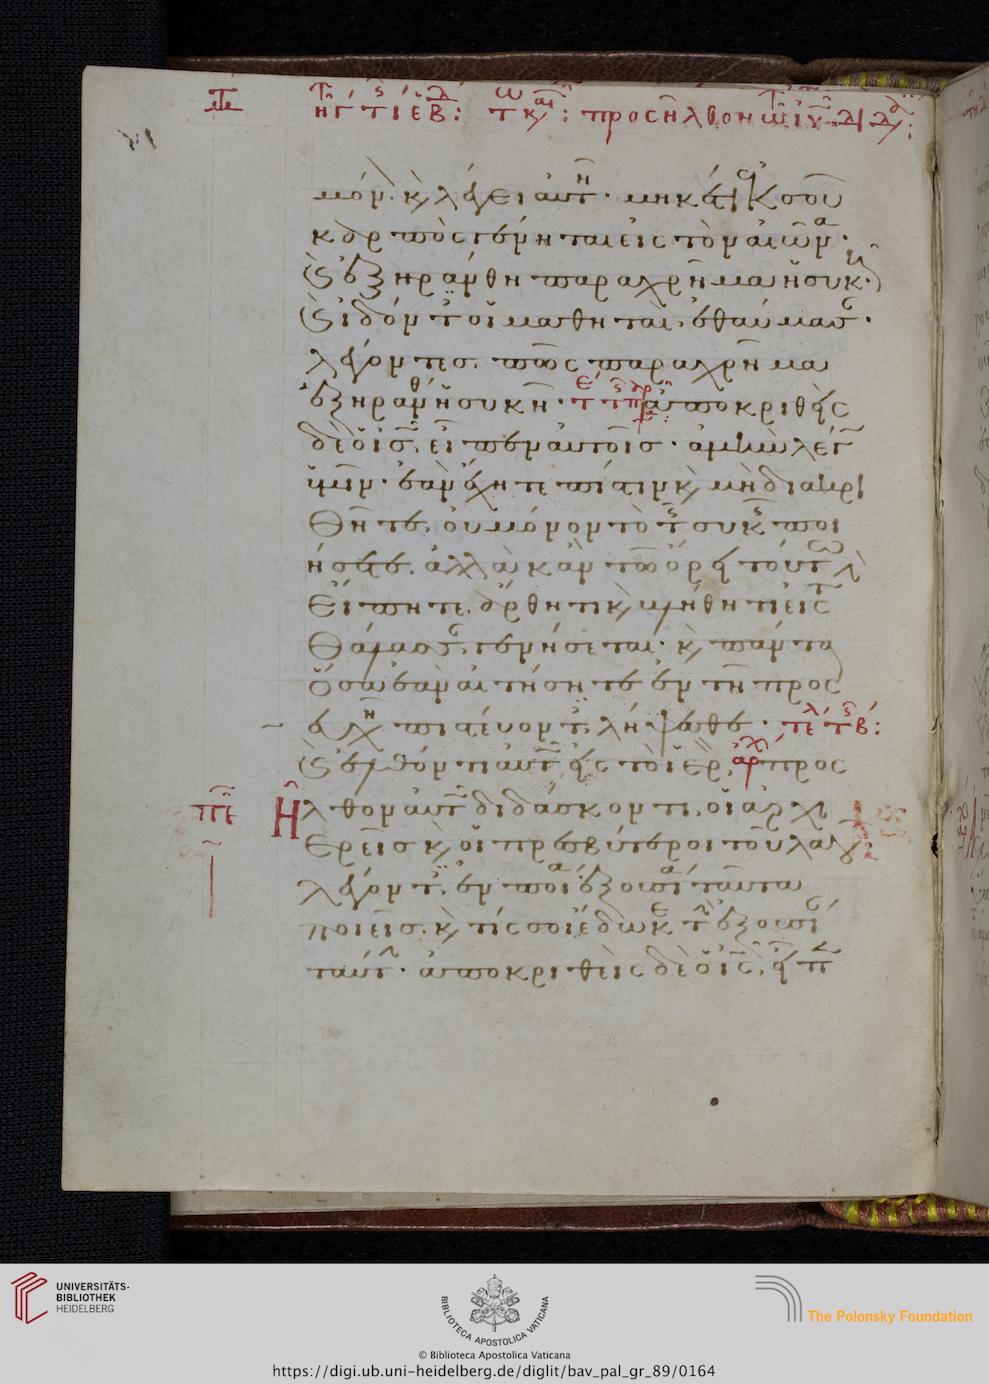 μόν· κ(αὶ) λέγει αὐτῆ· μηκέτι ἐκ σοῦ
καρπὸς γένηται εἰς τὸν αἰῶνα·
κ(αὶ) ἐξηράνθη παραχρῆμα ἡ συκῆ·
κ(αὶ) ἰδόντ(ες) οἱ μαθηταὶ, ἐθαύμασ(αν)·
λέγοντες, πῶς παραχρῆμα
ἐξηράνθη ἡ συκῆ· ἀποκριθεὶς
δὲ ὁ ἰσ, εἶπεν αὐτοῖσ· ἀμὴν λέγω
ὑμῖν· ἐὰν ἔχητε πίστιν κ(αὶ) μὴ διακρι
θῆτε, οὐ μόνον τὸ τῆς συκῆς ποι
ήσετε, ἀλλὰ κἂν τῶ ὄρει τούτω
εἴπητε, ἄρθητι κ(αὶ) βλήθητι εἰς τ(ὴν)
θάλασσαν, γενήσεται· κ(αὶ) πάντα
ὅσα ἐὰν αἰτήσητε ἐν τῆ προς
ευχῆ πιστεύοντ(ες), λήψεσθε·
κ(αὶ) ἐλθόντι αὐτῶ εἰς τὸ ἱερ(ὸν), προς
ῆλθον αὐτῶ διδάσκοντι, οἱ ἀρχι
ερεῖσ κ(αὶ) οἱ πρεσβύτεροι τοῦ λαοῦ
λέγοντ(ες), ἐν ποία ἐξουσία ταῦτα
ποιεῖσ· κ(αὶ) τίς σοι ἔδωκε τ(ὴν) ἐξουσί(αν)
ταύτ(ην)· ἀποκριθεὶς δὲ ὁ ἰς, εἶπ(εν)
UNIVERSITÄTS-
BIBLIOTHEK
HEIDELBERG
BIBLIOTECA APOSTOLICA VATICANA
The Polonsky Foundation
© Biblioteca Apostolica Vaticana
https://digi.ub.uni-heidelberg.de/diglit/bav_pal_gr_89/0164